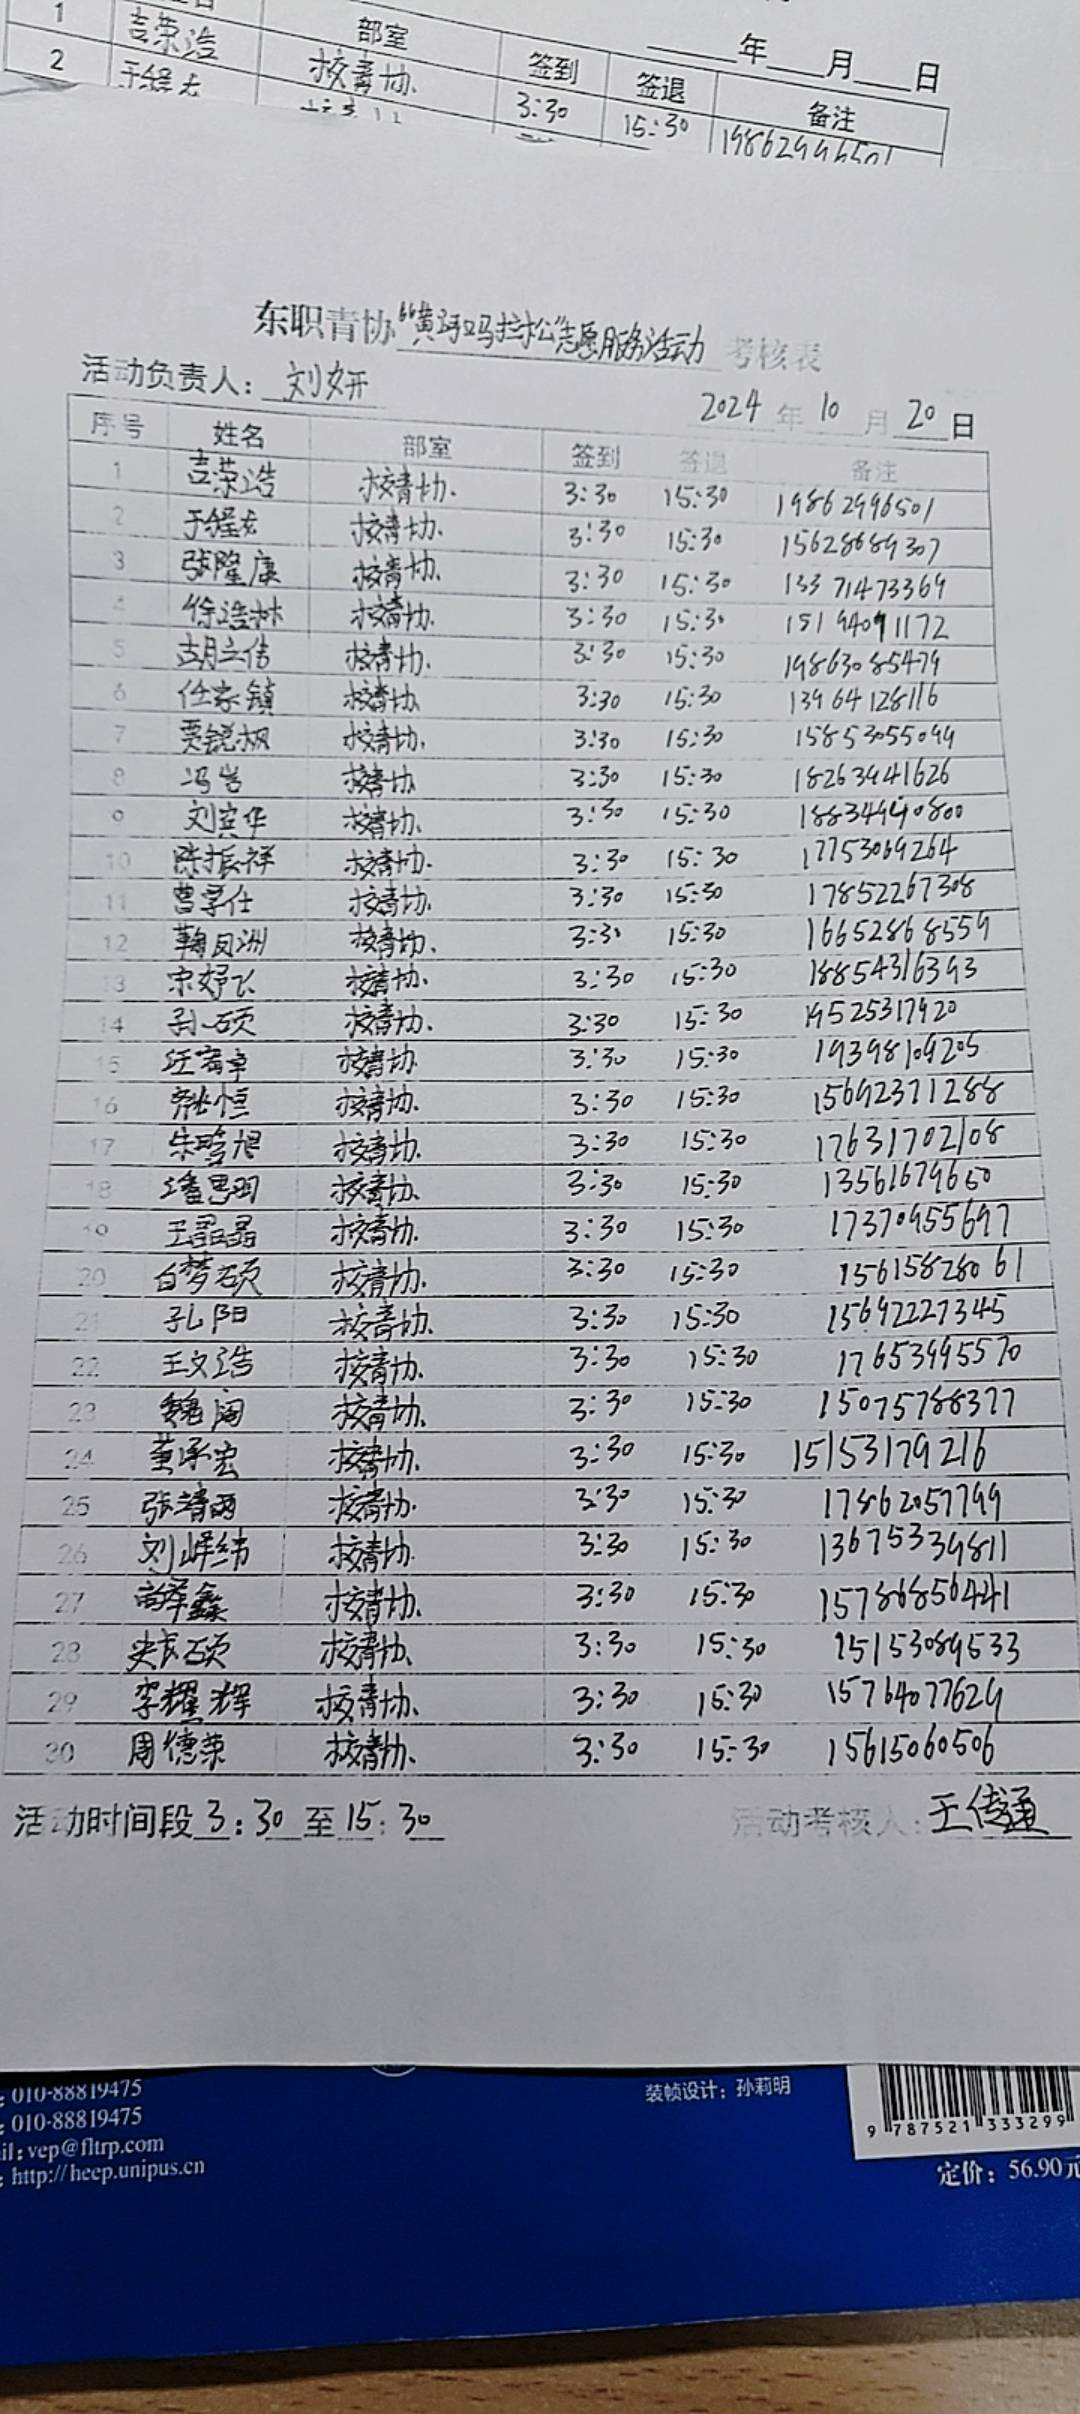 1 吉荣浩 校青协. 3:30 15:30
部室 签到 签退 备注
年 月 日
2
东职青协“黄河马拉松”志愿服务活动 考核表
活动负责人: 刘妍 2024年10月20日
序号 姓名 部室 签到 签退 备注
1 吉荣浩 校青协. 3:30 15:30 19862996501
2 于程龙 校青协. 3:30 15:30 15628689307
3 张隆康 校青协. 3:30 15:30 13371473369
4 徐浩林 校青协. 3:30 15:30 15194091172
5 胡立伟 校青协. 3:30 15:30 19863085479
6 任家镇 校青协 3:30 15:30 13964128116
7 贾锐枫 校青协. 3:30 15:30 15853055099
8 冯岩 校青协. 3:30 15:30 18263941626
9 刘宾华 校青协. 3:30 15:30
10 陈振祥 校青协. 3:30 15:30 17753069264
11 曹 仕 校青协. 3:30 15:30 17852267308
12 鞠凤洲 校青协. 3:30 15:30 16652868559
13 宋 校青协. 3:30 15:30 18854316393
14 孙硕 校青协. 3:30 15:30 19525317920
15 校青协. 3:30 15:30 19398109205
16 张恒 校青协. 3:30 15:30 15692371288
17 朱晗旭 校青协. 3:30 15:30 17631702108
18 潘思羽 校青协. 3:30 15:30 13561679660
19 王晶晶 校青协. 3:30 15:30 17370955697
20 白梦硕 校青协. 3:30 15:30 15615828061
21 孔阳 校青协. 3:30 15:30 15692227345
22 王文浩 校青协. 3:30 15:30 17653995570
23 魏 校青协. 3:30 15:30 15075788377
24 董承宏 校青协. 3:30 15:30 15153179216
25 张靖雨 校青协. 3:30 15:30 17862057799
26 刘峰纬 校青协. 3:30 15:30 13675339811
27 鑫 校青协. 3:30 15:30 15786856441
28 硕 校青协. 3:30 15:30 15153089533
29 李耀辉 校青协. 3:30 15:30 15764077629
30 周德荣 校青协. 3:30 15:30 15615060506
活动时间段 3:30 至 15:30 活动考核人: 王传通
: 010-88819475
: 010-88819475
il: vep@fltrp.com
: http://heep.unipus.cn
装帧设计: 孙莉明
9 787521 333299
定价: 56.90元